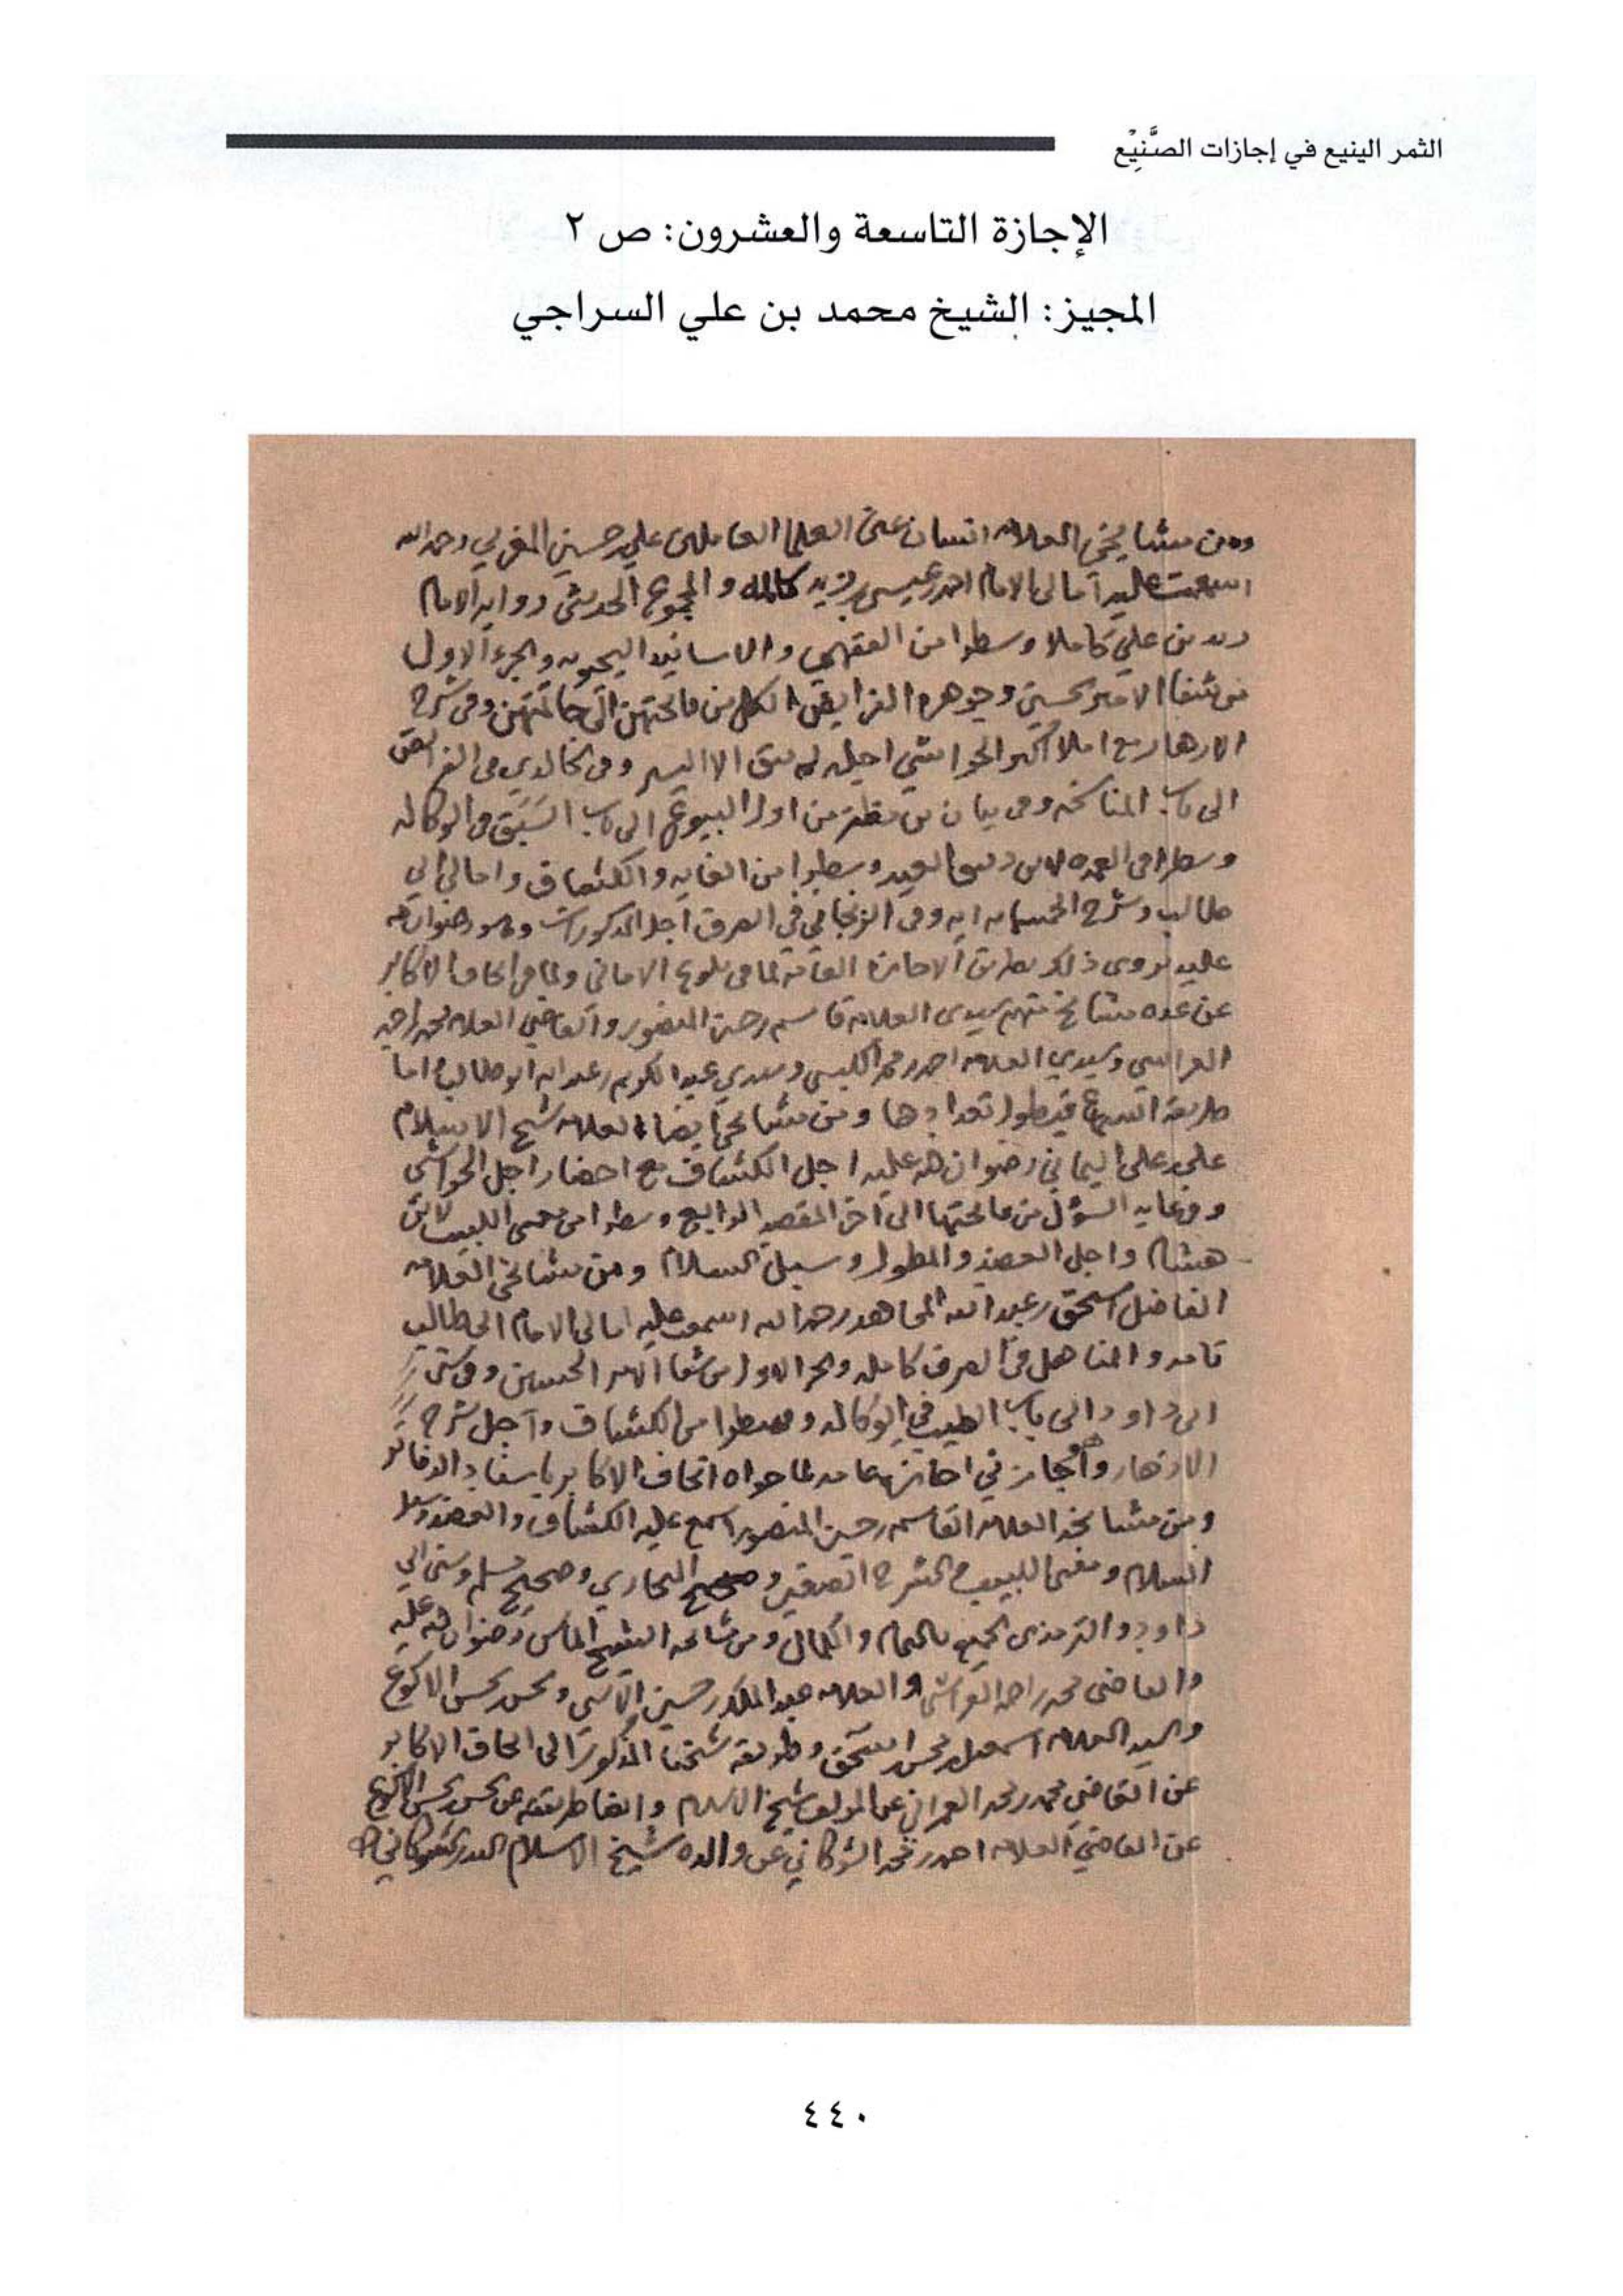 الثمر الينيع في إجازات الصَّنِيْع
الإجازة التاسعة والعشرون: ص ٢
المجيز: الشيخ محمد بن علي السراجي
ومن مشايخي العلامه انسان عين العلما العاملين علي حسين المغربي رحمه الله
اسمعت عليه امالي الامام احمد عيسى بن زيد كامله والمجموع الحديثي روايه الامام
زيد بن علي كاملا وسطرا من الفقهي والاسانيد اليحيويه والجزء الاول
من شفا الامير الحسين وجوهرة الفرايض الكل من فاتحتهن الى خاتمتهن وفي شرح
الازهار مع املا اكثر الحواشي اجله لم يبق الا اليسير وفي الخالدي في الفرائض
الى باب المناسخه وفي بيان بن مظفر من اول البيوع الى باب السبق في الوكاله
وسطرا في العمده لابن دقيق العيد وسطرا من الغايه والكشاف وامالي ابي
طالب وشرح الخمسمايه ايه وفي الزنجاني في الصرف اجل المذكورات وهو رضوان الله
عليه يروي ذلك بطريق الاجازة العامة لما في بلوغ الاماني ولما في اتحاف الاكابر
عن عده مشايخ منهم سيدي العلامه قاسم حسين المنصور والقاضي العلامه محمد احمد
العراسي وسيدي العلامه احمد محمد الكبسي وسيدي عبد الكريم عبد الله ابو طالب اما
طريقة السماع فيطول تعدادها ومن مشايخي ايضا العلامه شيخ الاسلام
علي علي اليماني رضوان الله عليه اجل الكشاف مع احضار اجل الحواشي
وفي غايه السؤل من فاتحتها الى آخر المقصد الرابع وسطرا من مغني اللبيب لابن
هشام واجل العضد والمطول وسبل السلام ومن مشايخي العلامه
الفاضل اسحق عبد الله المجاهد رحمه الله اسمعت عليه امالي الامام ابي طالب
تامه والمناهل في الصرف كامله والجز الاول من شفا الامير الحسين وفي سنن
ابي داود الى باب الطيب في الوكاله وسطرا من الكشاف واجل شرح
الازهار وأجازني اجازة عامه لما حواه اتحاف الاكابر باسناد الدفاتر
ومن مشايخه العلامه القاسم حسين المنصور اسمع عليه الكشاف والعضد وسبل
السلام ومغني اللبيب والشرح الصغير وصحيح البخاري وصحيح مسلم وسنن ابي
داود والترمذي الجميع بالتمام والكمال ومن مشايخه الشيخ الماس رضوان الله عليه
والقاضي محمد احمد العراسي والعلامه عبد الملك حسين الآنسي ومحسن محسن الاكوع
والسيد العلامه اسمعيل محسن اسحق وطريقة شيخنا المذكور الى اتحاف الاكابر
عن القاضي محمد محمد العمراني عن المولف شيخ الاسلام وايضا طريقته عن محسن محسن الاكوع
عن القاضي العلامه احمد محمد الشوكاني عن والده شيخ الاسلام البدر الشوكاني
٤٤٠